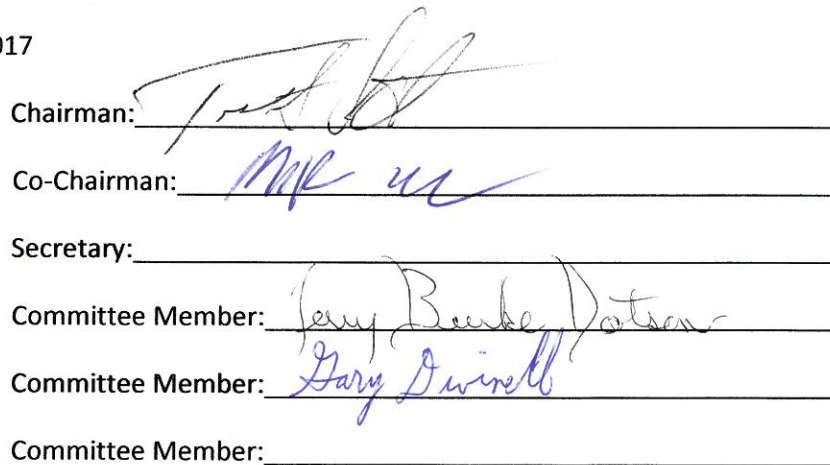 017
Chairman:
Co-Chairman:
Secretary:
Committee Member: Burke Dotson
Committee Member: Gary Dwinell
Committee Member: